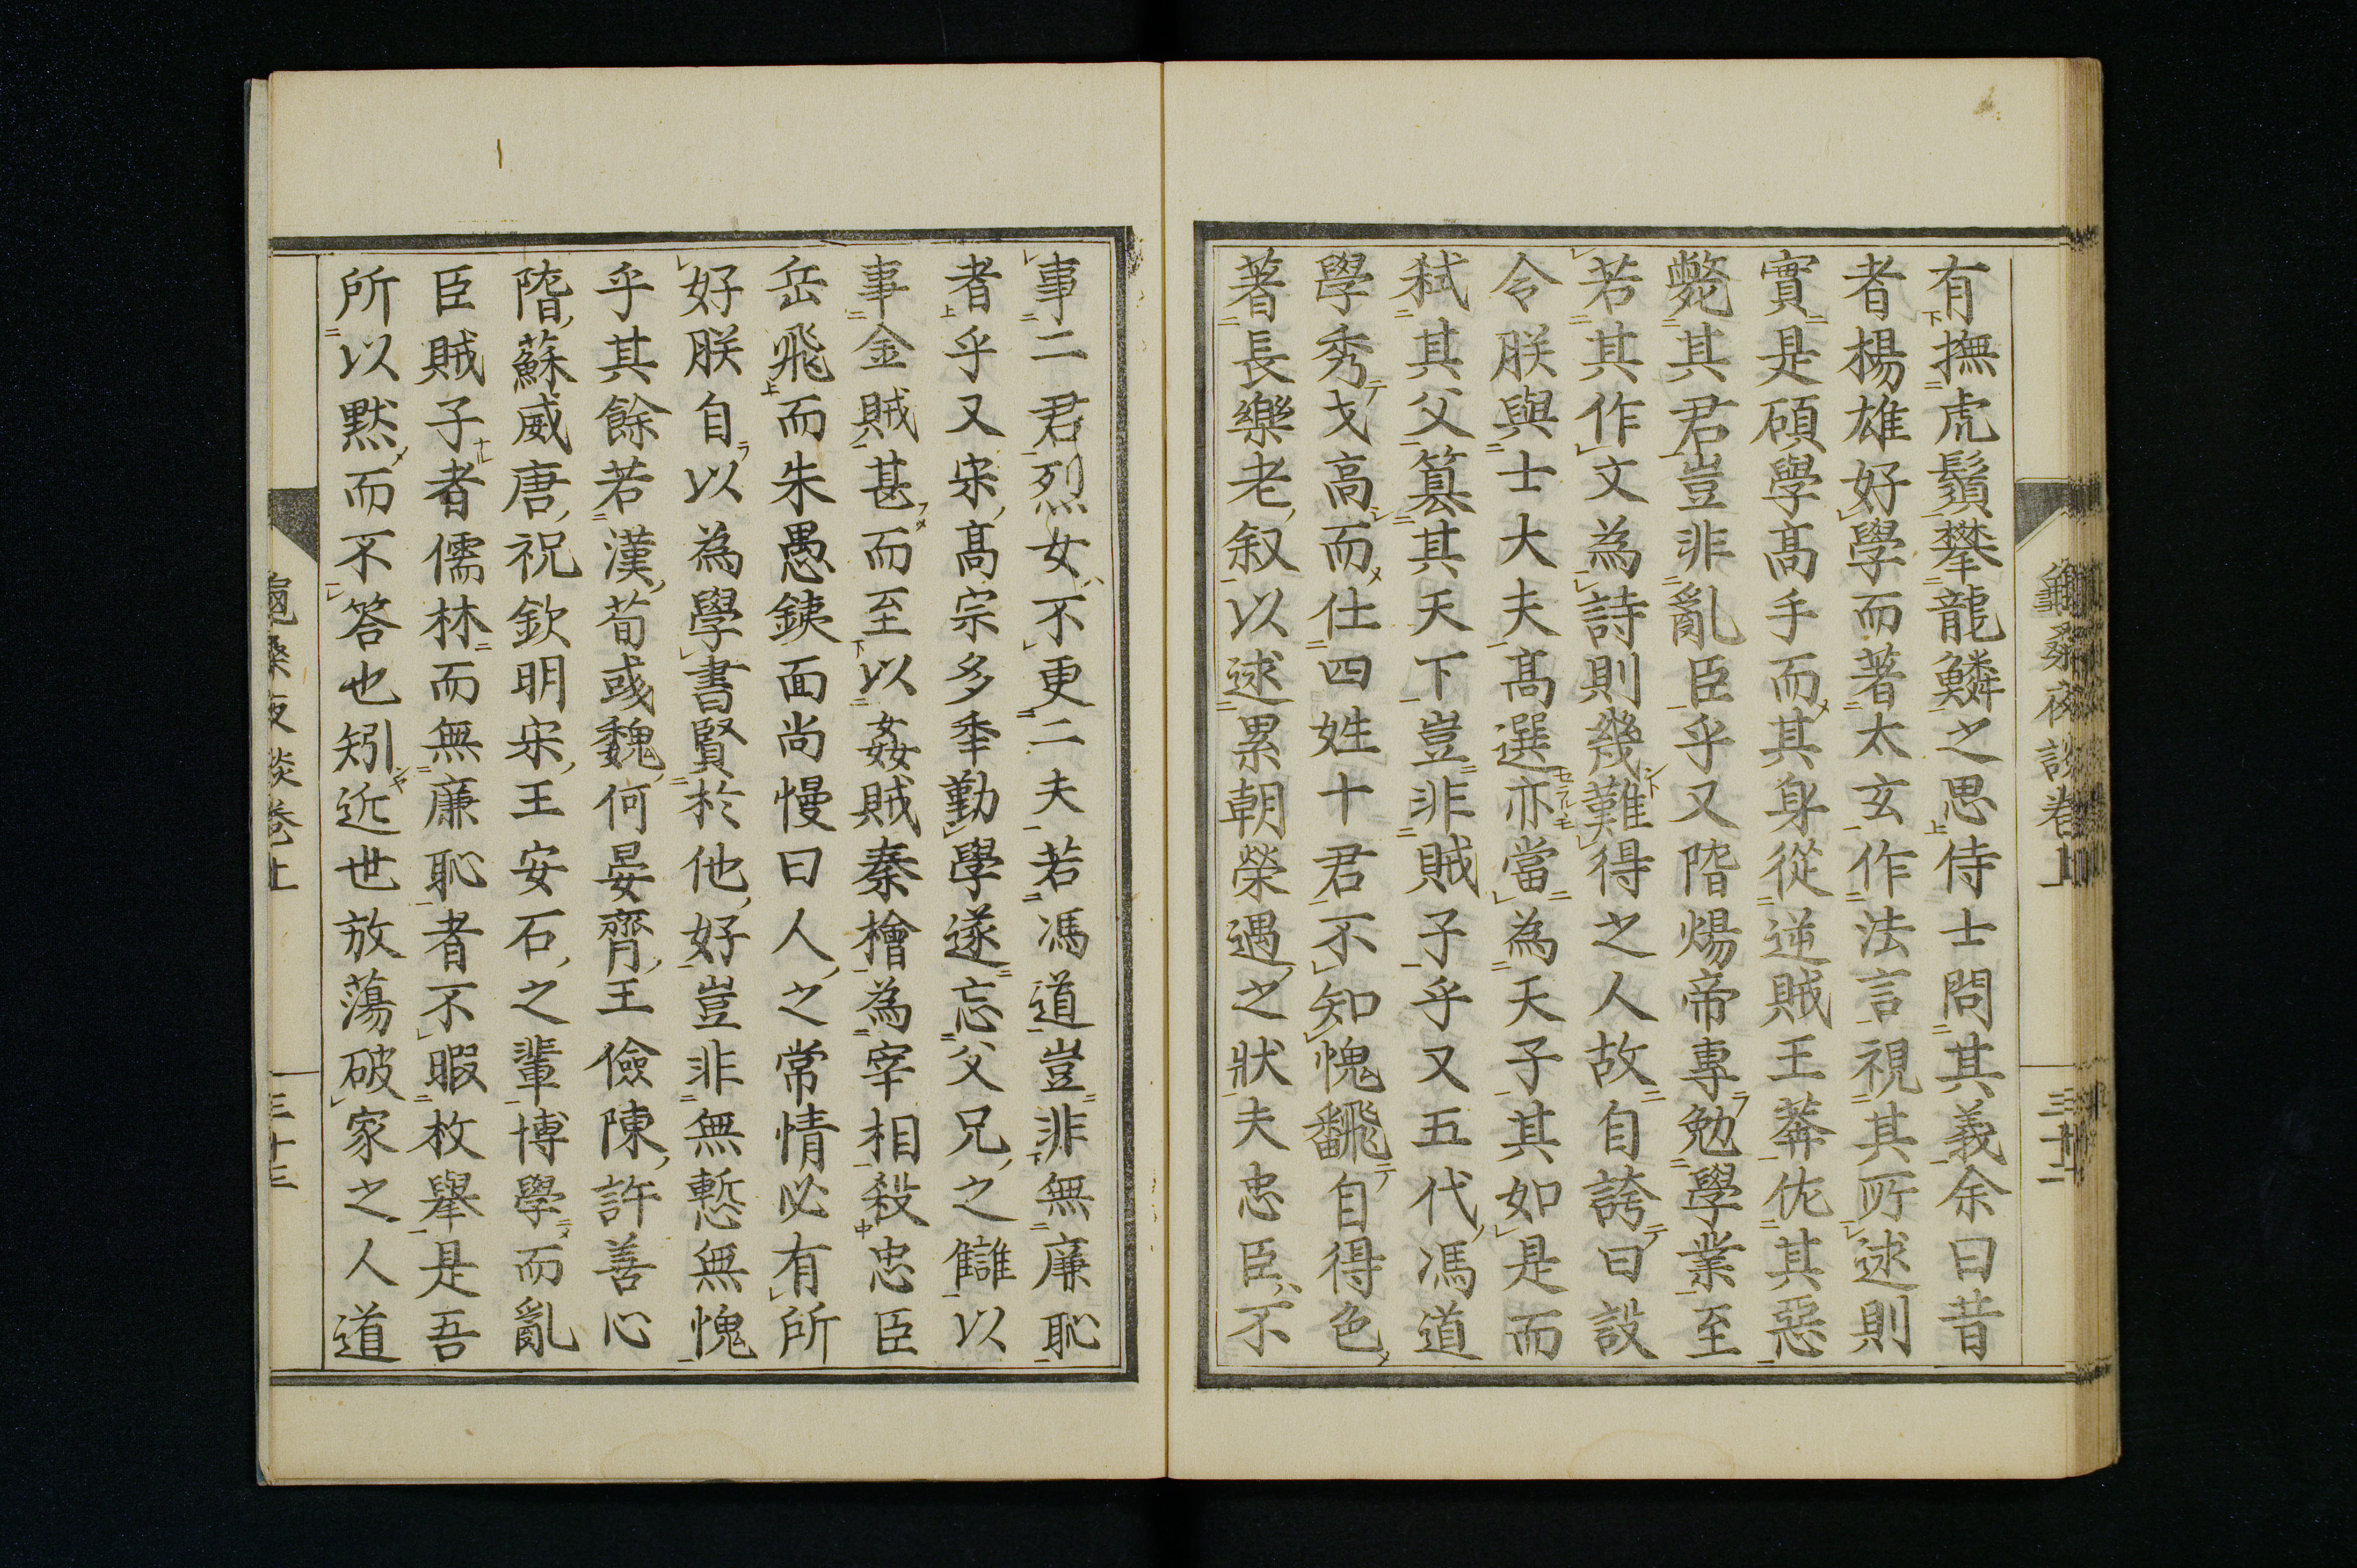 龜桑夜談卷上 三十二
有撫虎鬚攀龍鱗之思侍士問其義余曰昔
者楊雄好學而著太玄作法言視其所述則
實是碩學高手而其身從逆賊王莽佐其惡
斃其君豈非亂臣乎又隋煬帝專勉學業至
若其作文為詩則幾難得之人故自誇曰設
令朕與士大夫高選亦當為天子其如是而
弑其父篡其天下豈非賊子乎又五代馮道
學秀才高而仕四姓十君不知愧飜自得色
著長樂老叙以述累朝榮遇之狀夫忠臣不
事二君烈女不更二夫若馮道豈非無廉恥
者乎又宋高宗多季勤學遂忘父兄之讎以
事金賊甚而至以姦賊秦檜為宰相殺忠臣
岳飛而朱愚銕面尚慢曰人之常情必有所
好朕自以為學書賢於他好豈非無慙無愧
乎其餘若漢荀彧魏何晏齊王儉陳許善心
隋蘇威唐祝欽明宋王安石之輩博學而亂
臣賊子者儒林而無廉恥者不暇枚舉是吾
所以黙而不答也矧近世放蕩破家之人道
龜桑夜談卷上 三十三